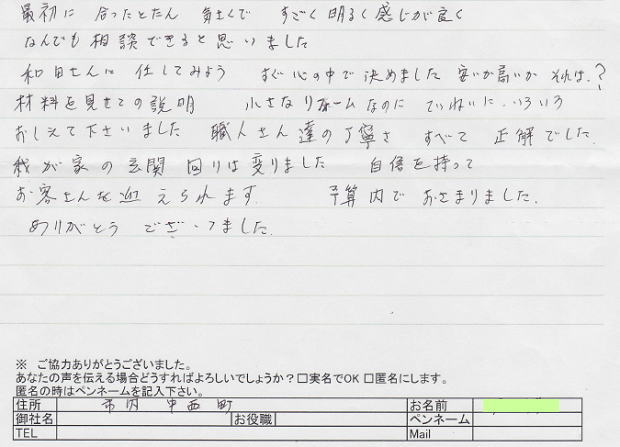 最初に 合ったとたん 気さくで すごく明るく感じが良く
なんでも相談できると思いました
和田さんに任してみよう すぐ心の中で決めました 安いか高いか それは.?
材料を見せての説明 小さなリフォームなのに ていねいに いろいろ
おしえて下さいました 職人さん達の丁寧さ すべて 正解でした.
我が家の玄関回りは変りました 自信を持って
お客さんを迎えられます. 予算内で おさまりました.
ありがとう ございました.
※ ご協力ありがとうございました。
あなたの声を伝える場合どうすればよろしいでしょうか？□実名でOK □匿名にします。
匿名の時はペンネームを記入下さい。
住所 市内 中西町 お名前
御社名 お役職 ペンネーム
TEL Mail